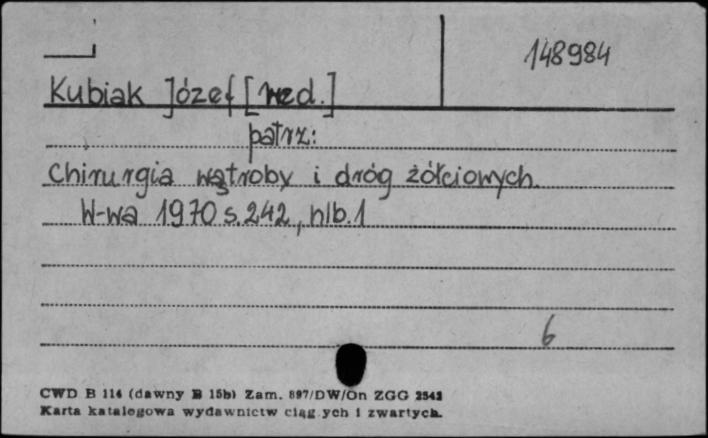 148984
Kubiak Józef [red.]
patrz:
Chirurgia wątroby i dróg żółciowych.
W-wa 1970 s. 242, nlb. 1
6
CWD B 114 (dawny B 15b) Zam. 897/DW/On ZGG 2542
Karta katalogowa wydawnictw ciąg ych i zwartych.